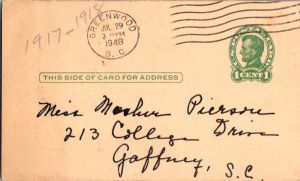 1917-1918
GREENWOOD
JUL 29
3 PM
1948
S. C.
1 CENT 1
THIS SIDE OF CARD FOR ADDRESS
Miss Mosher Pierson
213 College Drive
Gaffney, S.C.